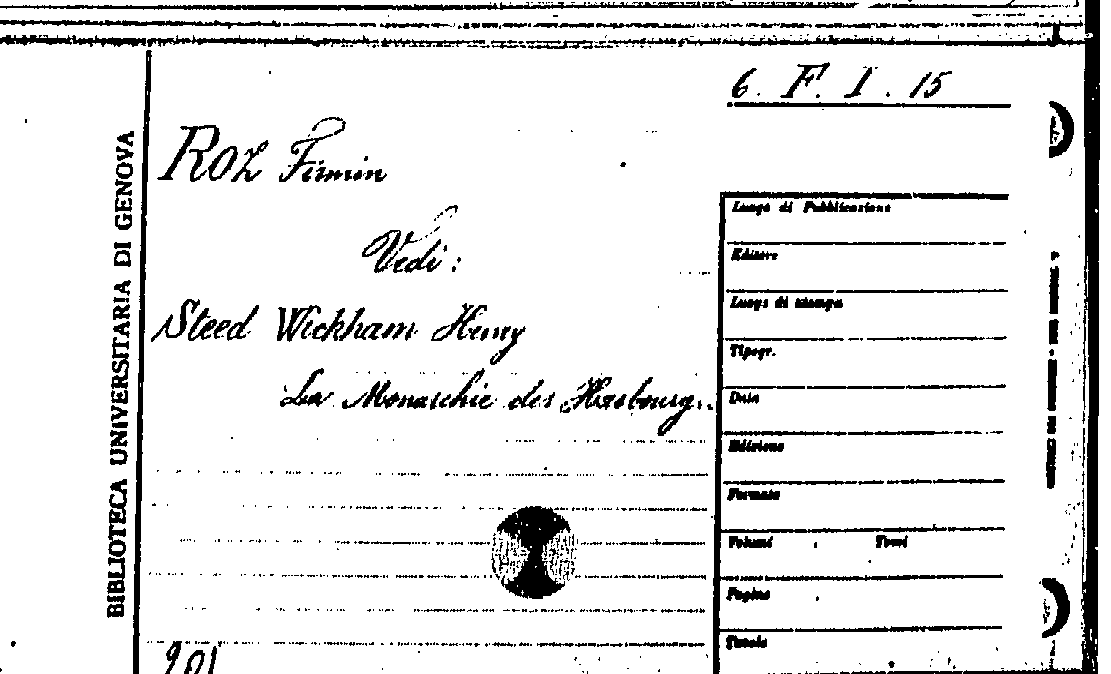 6. F. I. 15
BIBLIOTECA UNIVERSITARIA DI GENOVA
Roz Firmin
Vedi:
Steed Wickham Henry
La Monarchie des Hasbourg..
Luogo di Pubblicazione
Editore
Luogo di stampa
Tipogr.
Data
Edizione
Formato
Volumi Tomi
Pagine
Tavole
901